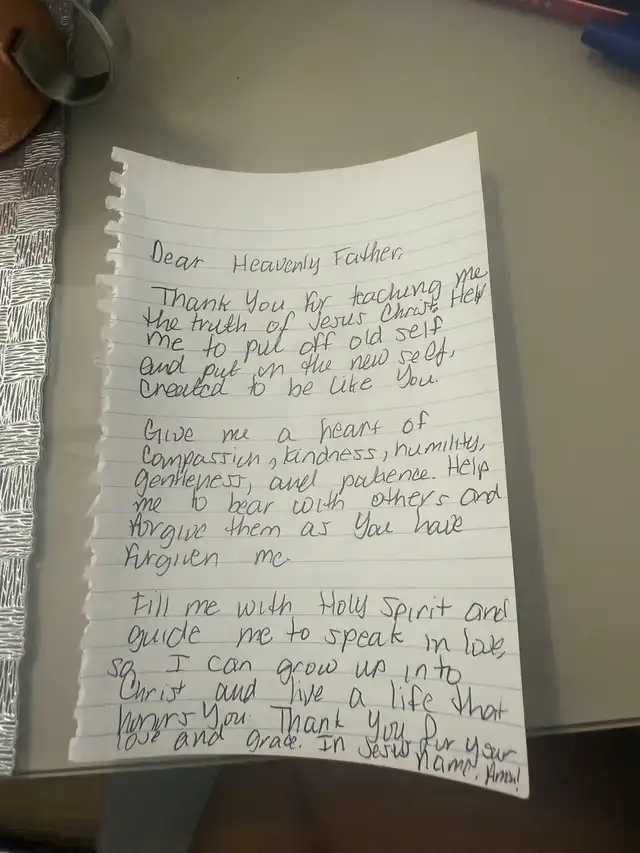 Dear Heavenly Father,
Thank You for teaching me
the truth of Jesus Christ. Help
me to put off old self
and put on the new self,
created to be like You.
Give me a heart of
compassion, kindness, humility,
gentleness, and patience. Help
me to bear with others and
forgive them as You have
forgiven me.
Fill me with Holy Spirit and
guide me to speak in love,
so I can grow up into
Christ and live a life that
honors You. Thank You for your
love and grace. In Jesus name. Amen!